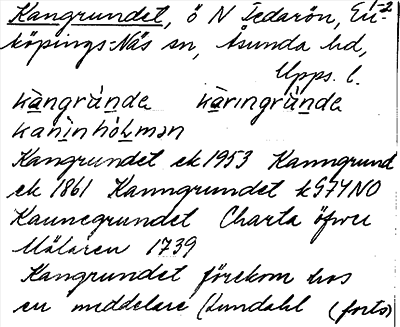 Kangrundet, ö N Tedarön, En- 1-2
köpings-Näs sn, Åsunda hd,
Upps. l.
kàngrúnde kàringrúnde
kanìnhólmən
Kangrundet ek 1953 Kanngrund
ek 1861 Kanngrundet kS74NO
Kaunegrundet Charta öfwer
Mälaren 1739
Kangrundet förekom hos
en meddelare (Lundahl (forts)